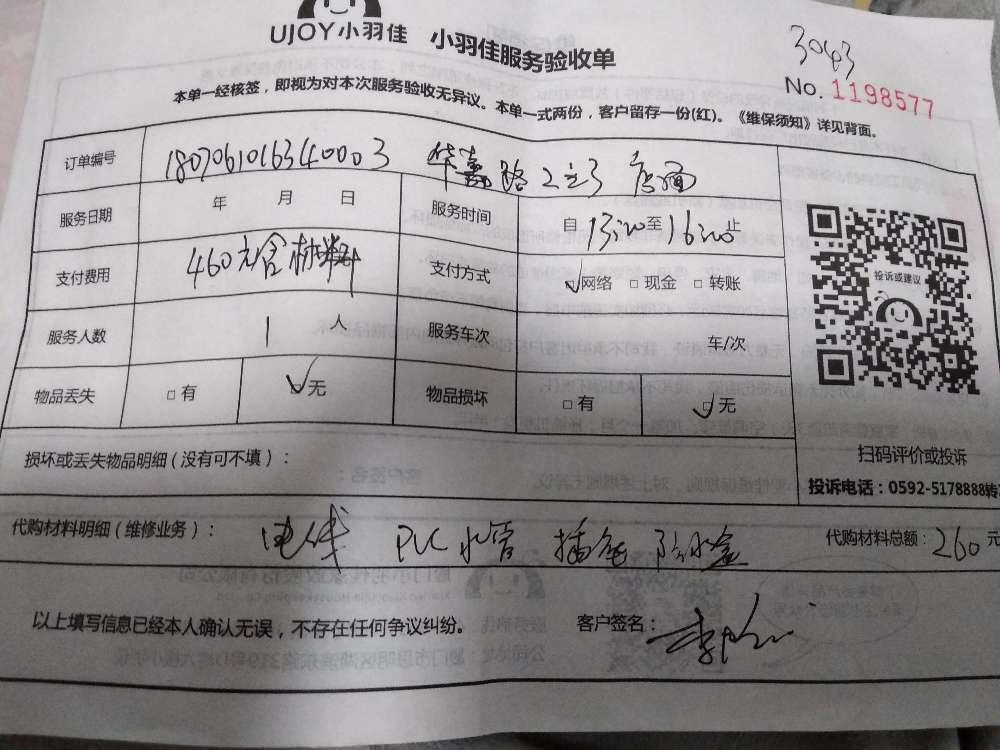 UJOY小羽佳 小羽佳服务验收单
3043
No. 1198577
本单一经核签，即视为对本次服务验收无异议。本单一式两份，客户留存一份(红)。《维保须知》详见背面。
订单编号 180706101634000 3 华嘉路2 店面
服务日期 年 月 日 服务时间 自 13:00 至 16:00 止
支付费用 460元含材料 支付方式 ☑网络 □现金 □转账
服务人数 1 人 服务车次 车/次
物品丢失 □有 ☑无 物品损坏 □有 ☑无
投诉或建议
扫码评价或投诉
投诉电话：0592-5178888转
损坏或丢失物品明细（没有可不填）：
代购材料明细（维修业务）： 电线 PVC水管 插座 防水盒 代购材料总额：260元
以上填写信息已经本人确认无误，不存在任何争议纠纷。 客户签名：